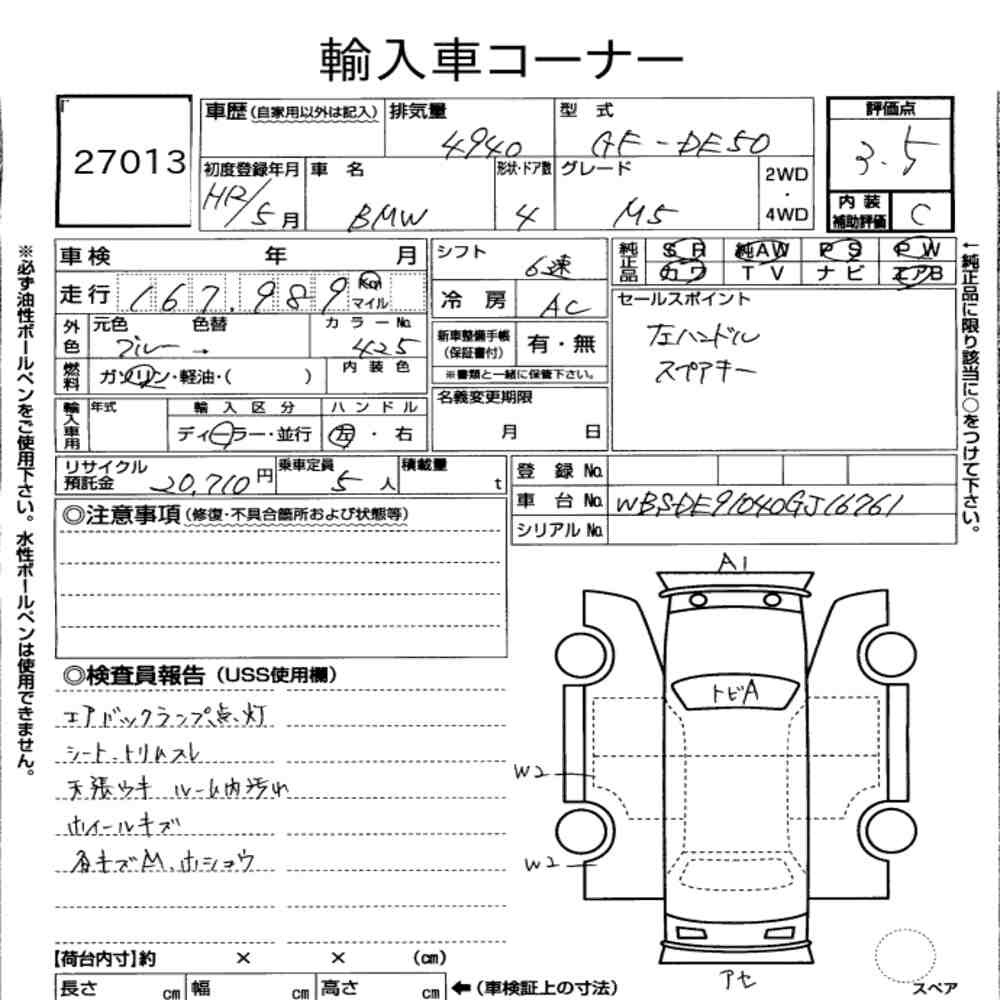 輸入車コーナー
27013
車歴(自家用以外は記入) 排気量 型 式 評価点
4940 GF-DE50 3.5
初度登録年月 車 名 形状・ドア数 グレード 2WD ・ 4WD 内 装 補助評価 C
5月 BMW 4 M5
※必ず油性ボールペンをご使用下さい。水性ボールペンは使用できません。
車検 年 月 シフト 6速 純正品 SR 純AW PS PW
カワ TV ナビ エアB
走行 167,989 Km マイル 冷 房 AC セールスポイント
左ハンドル
スペアキー
外色 元色 色替 カラーNo.
ブルー → 425
新車整備手帳(保証書付) 有・無
※書類と一緒に保管下さい。
燃料 ガソリン・軽油・( ) 内 装 色
名義変更期限 月 日
輸入車用 年式 輸 入 区 分 ハ ン ド ル
ディーラー・並行 左 ・ 右
←純正品に限り該当に○をつけて下さい。
リサイクル預託金 20,710円 乗車定員 5人 積載量 t
登 録 No.
車 台 No. WBSDE91040GJ16761
シリアル No.
◎注意事項(修復・不具合箇所および状態等)
A1
トビA
W2
W2
アセ
スペア
◎検査員報告(USS使用欄)
エアバックランプ点灯
シート、トリムスレ
天張ウキ ルーム内汚れ
ホイールキズ
各キズM、ホショウ
【荷台内寸】約 × × (cm)
長さ cm 幅 cm 高さ cm ←(車検証上の寸法)